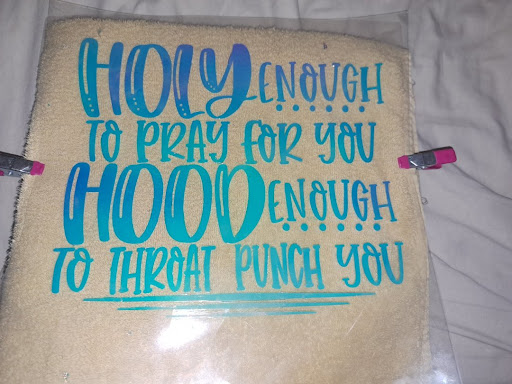 HOLY ENOUGH
TO PRAY FOR YOU
HOOD ENOUGH
TO THROAT PUNCH YOU